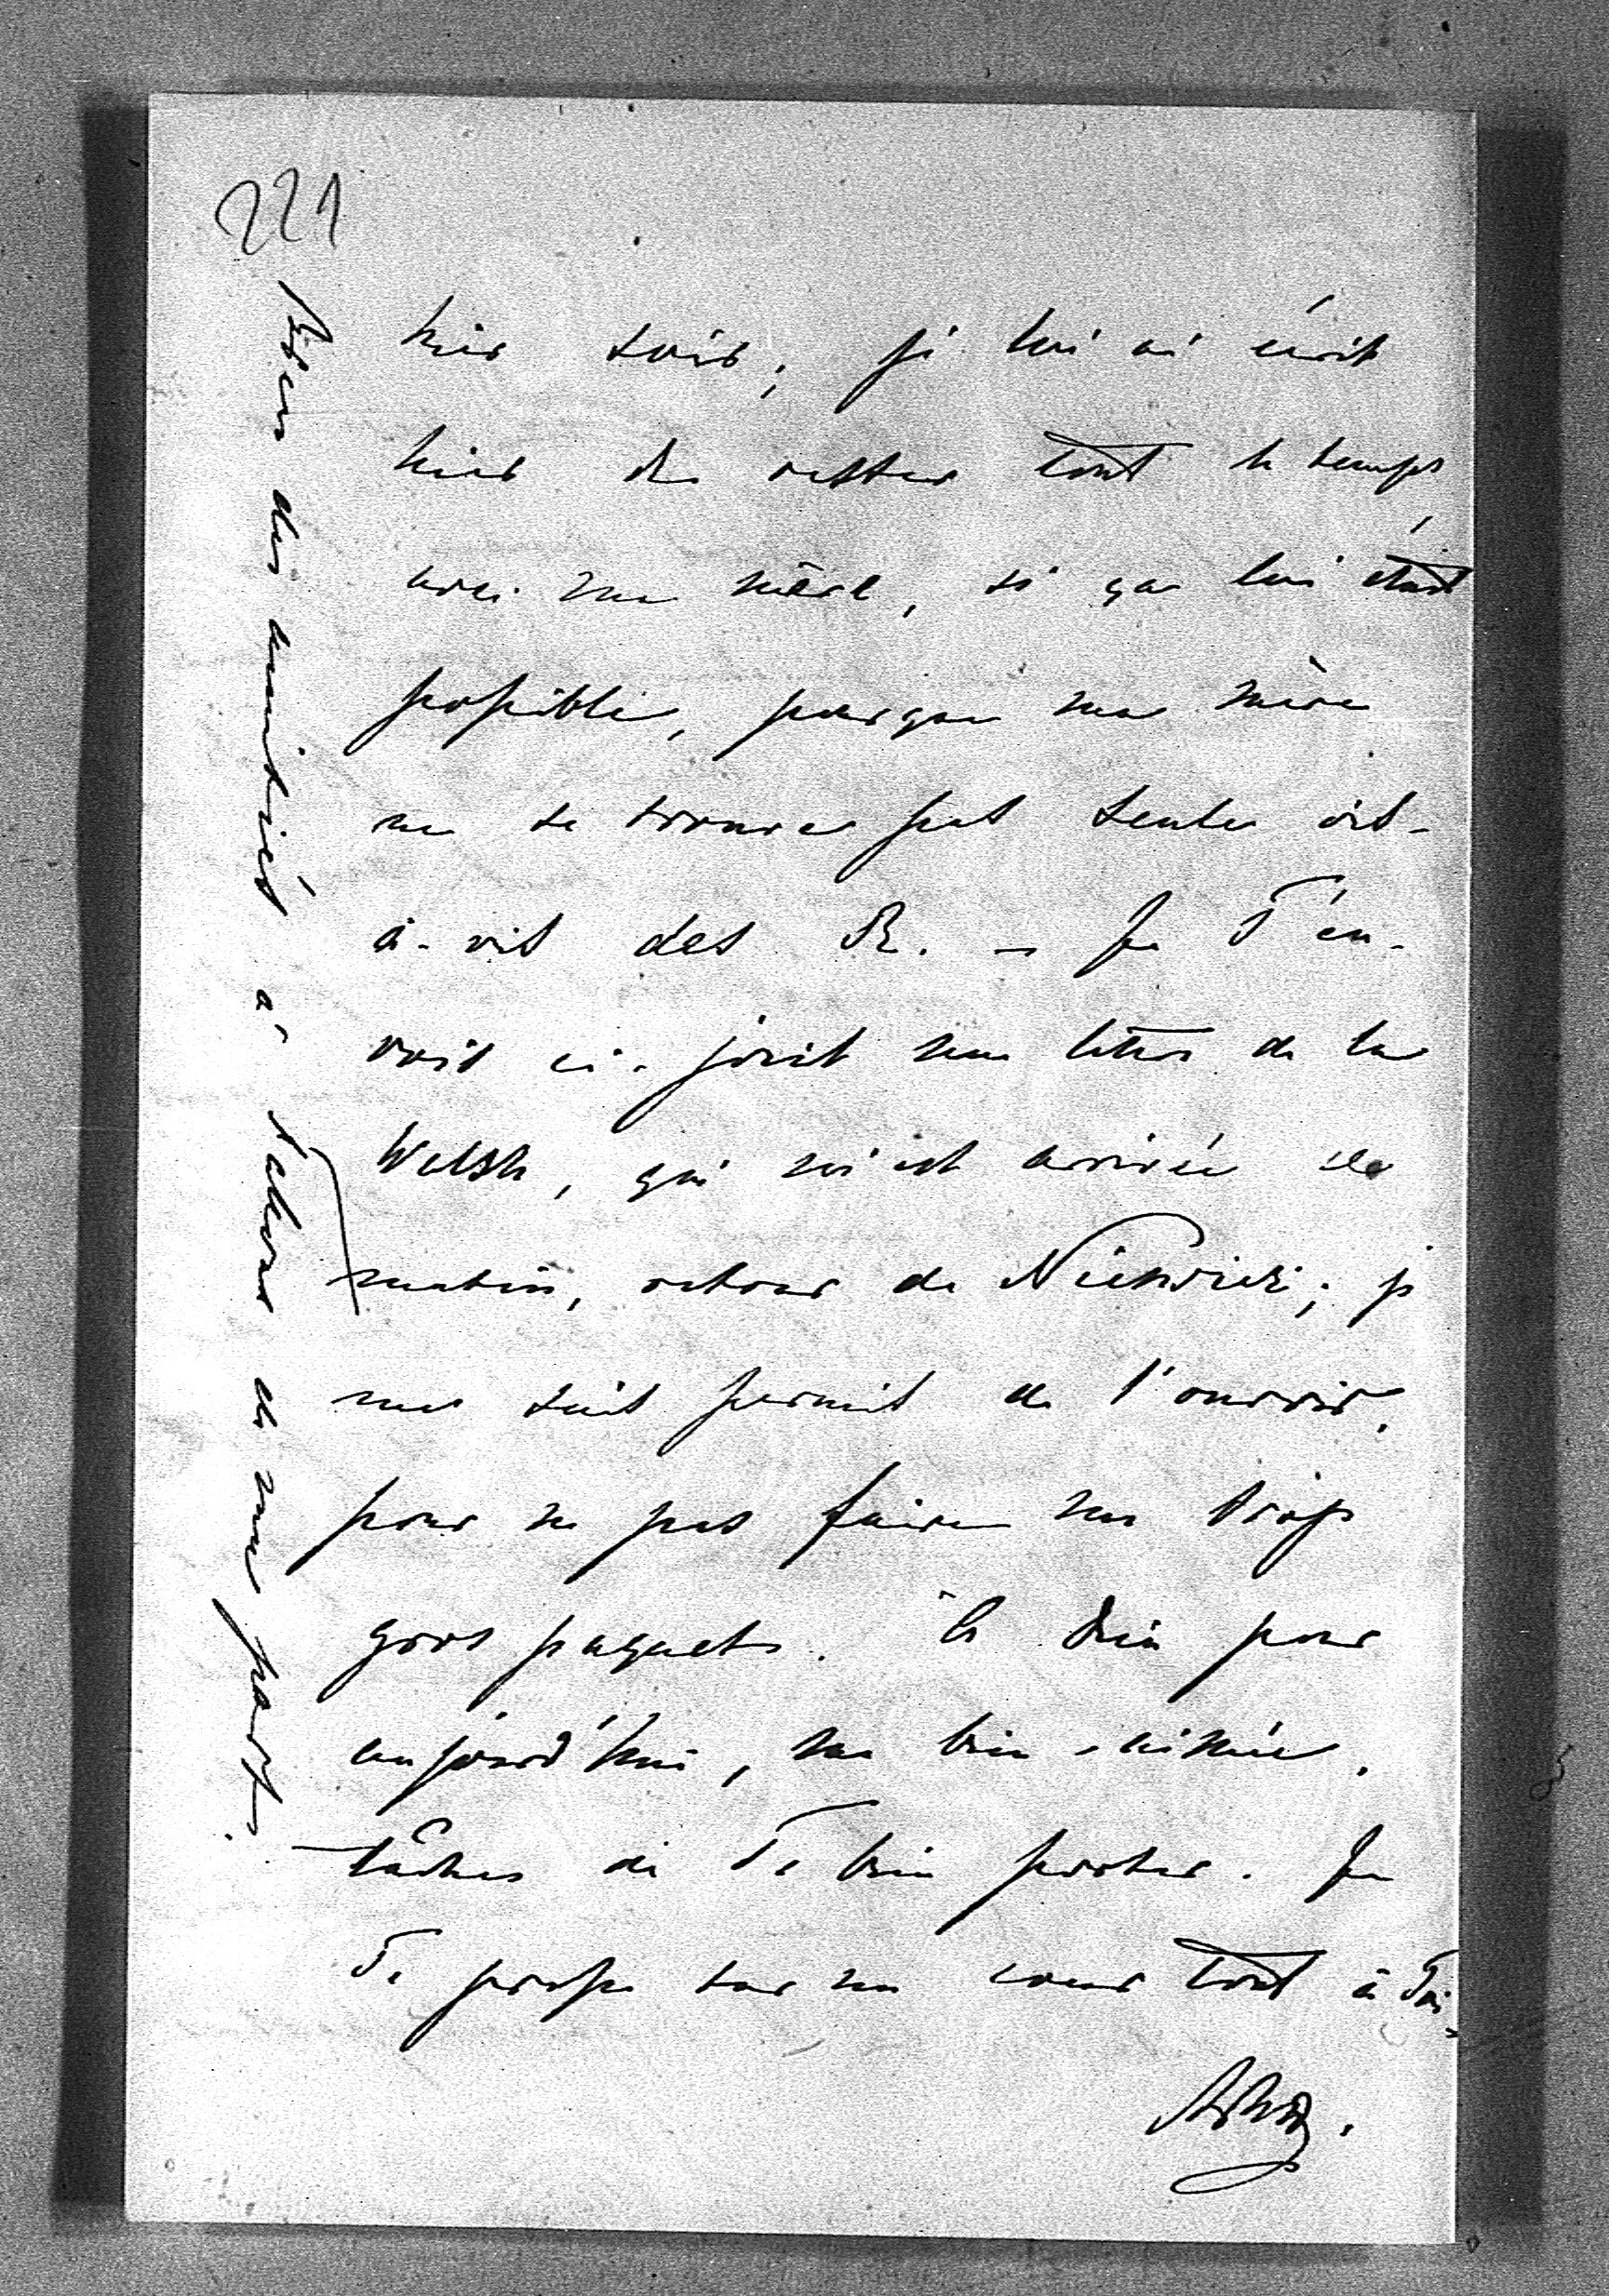 221
hier soir; je lui ai écrit
hier de rester tout le temps
avec ma mère, si ça lui était
possible, pour que ma mère
ne se trouve pas seule vis-
à-vis des R. – Je T'en-
vois ci-joint une lettre de la
Welsh, qui m'est arrivée ce
matin, retour de Niewież; je
me suis permis de l'ouvrir,
pour ne pas faire un trop
gros paquet. Et bien pour
aujourd'hui, ma bien-aimée,
tâches de Te bien porter. Je
Te presse sur mon coeur tout à Toi
Bien des amitiés à de ma part.